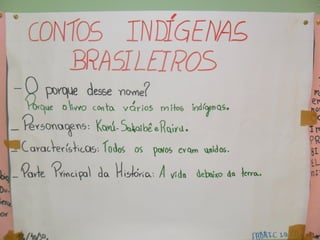 CONTOS INDÍGENAS
BRASILEIROS
- O porque desse nome?
Porque o livro conta vários mitos indígenas.
- Personagens: Karú-Sakaibê e Rairu.
- Características: Todos os povos eram unidos.
- Parte Principal da História: A vida debaixo da terra.